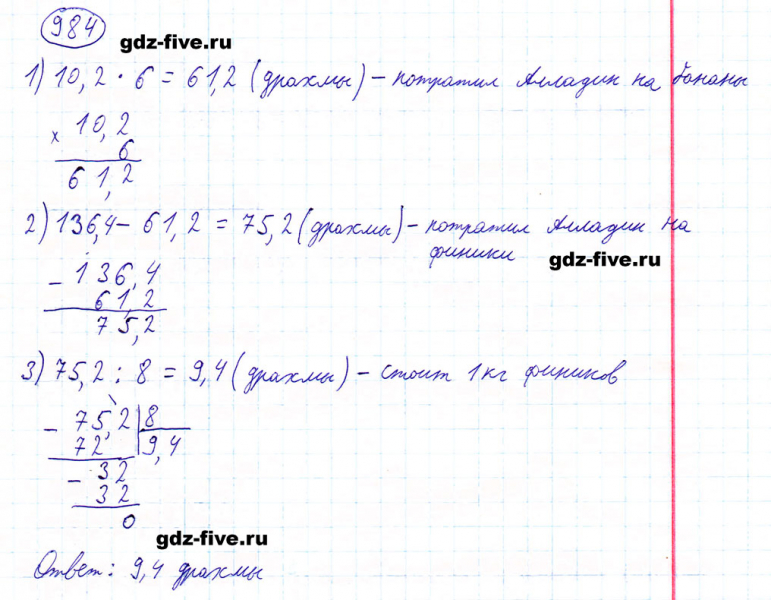 984
gdz-five.ru
1) 10,2 · 6 = 61,2 (драхмы) – потратил Алладин на бананы
× 10,2
6
61,2
2) 136,4 – 61,2 = 75,2 (драхмы) – потратил Алладин на
финики
gdz-five.ru
– 136,4
61,2
75,2
3) 75,2 : 8 = 9,4 (драхмы) – стоит 1 кг фиников
– 75,2 8
72 9,4
– 32
32
0
gdz-five.ru
Ответ: 9,4 драхмы